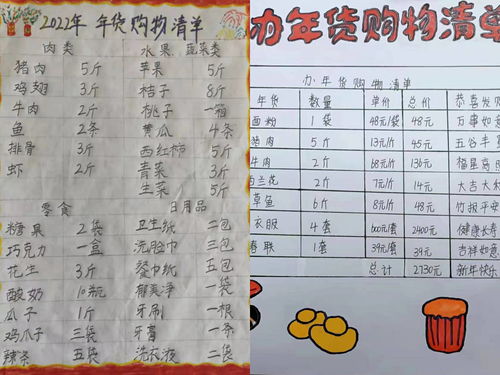 2022年 年货购物清单
肉类 水果 蔬菜类
猪肉 5斤 苹果 5斤
鸡翅 3斤 桔子 8斤
牛肉 2斤 桃子 一箱
鱼 2条 黄瓜 4条
排骨 3斤 西红柿 5斤
虾 2斤 青菜 3斤
生菜 5斤
零食 日用品
糖果 2袋 卫生纸 二包
巧克力 一盒 洗脸巾 三包
花生 3斤 餐巾纸 五包
酸奶 10瓶 郁美净 一包
瓜子 1斤 牙刷 一根
鸡爪子 三袋 牙膏 一条
辣条 五袋 洗衣液 二袋
办年货购物清单
办年货购物清单
年货 数量 单价 总价 恭喜发
面粉 1袋 48元/袋 48元 万事如意
猪肉 5斤 13元/斤 45元 五谷丰
牛肉 2斤 68元/斤 136元 福星高照
兰花 2斤 7元/斤 14元 大吉大利
草鱼 6斤 8元/斤 48元 竹报平安
衣服 4套 600元/套 2400元 健康长寿
春联 1套 39元/套 39元 吉祥如意
总计 2730元 新年快乐